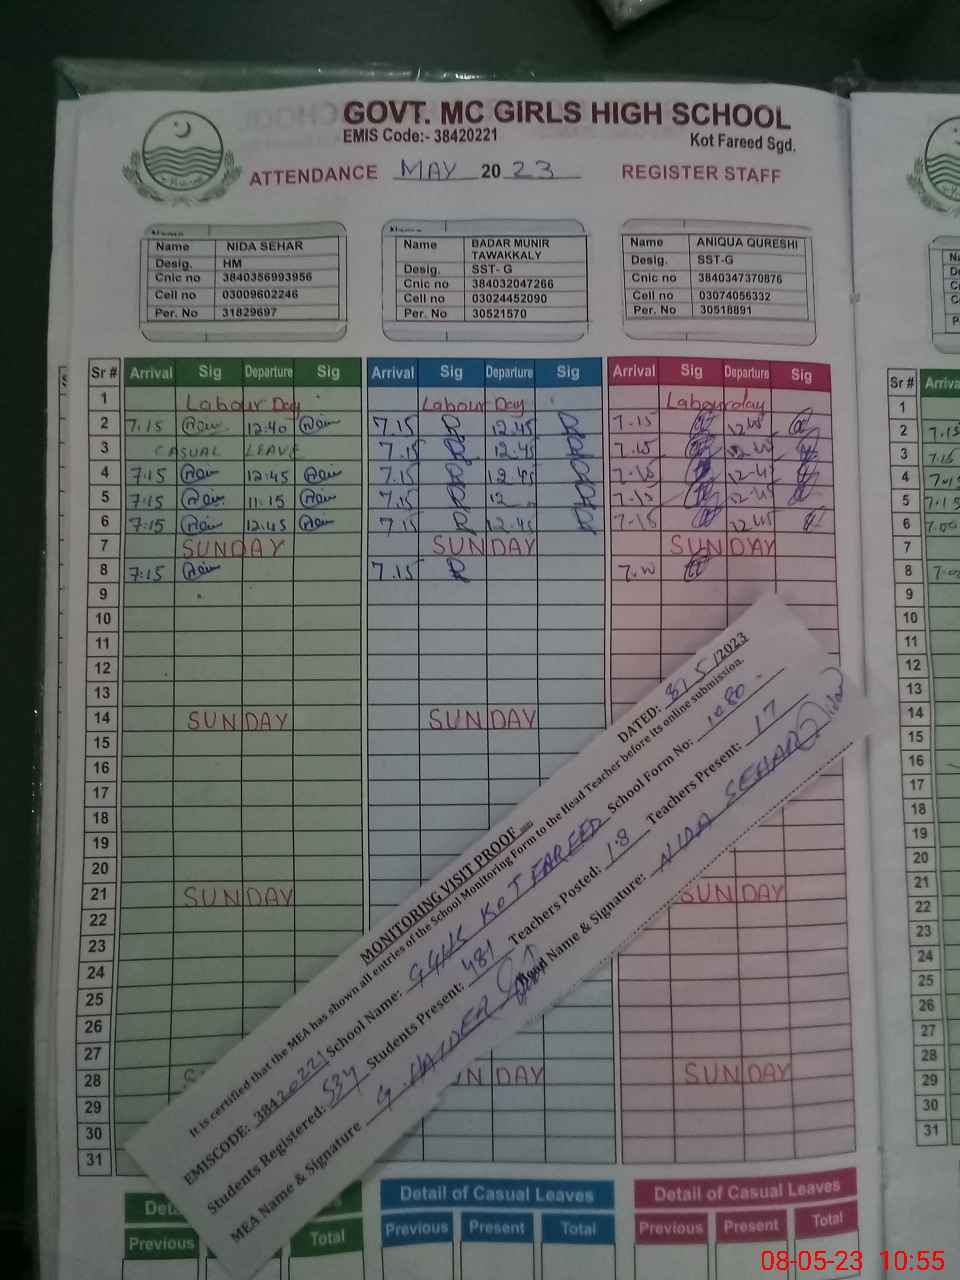 GOVT. MC GIRLS HIGH SCHOOL
EMIS Code:- 38420221
Kot Fareed Sgd.
ATTENDANCE MAY 2023 REGISTER STAFF
Name NIDA SEHAR
Desig. HM
Cnic no 3840356993956
Cell no 03009602246
Per. No 31829697
Name BADAR MUNIR TAWAKKALY
Desig. SST- G
Cnic no 384032047266
Cell no 03024452090
Per. No 30521570
Name ANIQUA QURESHI
Desig. SST-G
Cnic no 3840347370876
Cell no 03074056332
Per. No 30518891
Sr # Arrival Sig Departure Sig Arrival Sig Departure Sig Arrival Sig Departure Sig
1 Labour Day Labour Day Labour day
2 7.15 12:40 7.15 12.45 7.15 12.45
3 CASUAL LEAVE 7.15 12.45 7.15
4 7:15 12:45 7.15 12.45 7.15 12-45
5 7:15 11:15 7.15 12 7.15 12-45
6 7:15 12:45 7.15 12.45 7.15 12.45
7 SUNDAY SUNDAY SUNDAY
8 7:15 7.15
9
10
11
12
13
14 SUNDAY SUNDAY
15
16
17
18
19
20
21 SUNDAY SUNDAY
22
23
24
25
26
27
28 SUNDAY
29
30
31
MONITORING VISIT PROOF
DATED: 8/5/2023
It is certified that the MEA has shown all entries of the School Monitoring Form to the Head Teacher before its online submission.
EMISCODE: 38420221 School Name: GGHS KOT FAREED School Form No: 1080
Students Registered: 534 Students Present: 481 Teachers Posted: 18 Teachers Present: 17
MEA Name & Signature G. HAIDER Head Name & Signature: NIDA SEHAR
Detail of Casual Leaves
Detail of Casual Leaves
Previous Total
Previous Present Total
Previous Present Total
Arrival
1
2 7.15
3 7.15
4
5 7.15
6 7.00
7
8
9
10
11
12
13
14
15
16
17
18
19
20
21
22
23
24
25
26
27
28
29
30
31
08-05-23 10:55